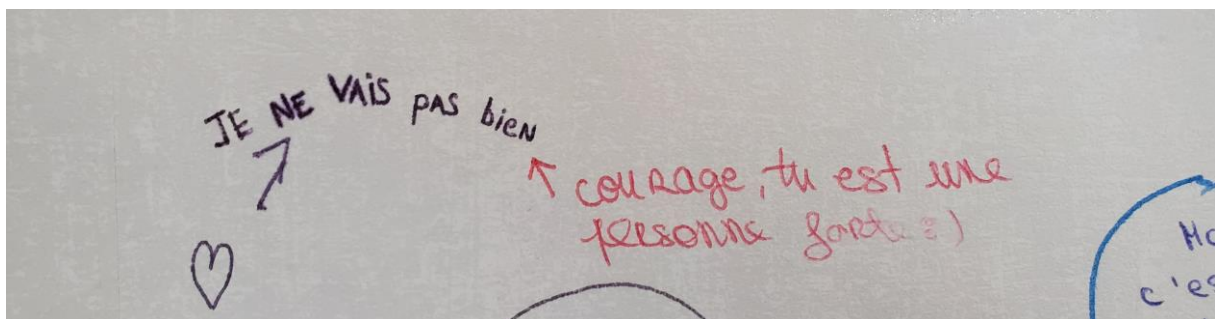 JE NE VAiS pAS bieN
courage, tu est une
personne forte :)
Mo
c'es